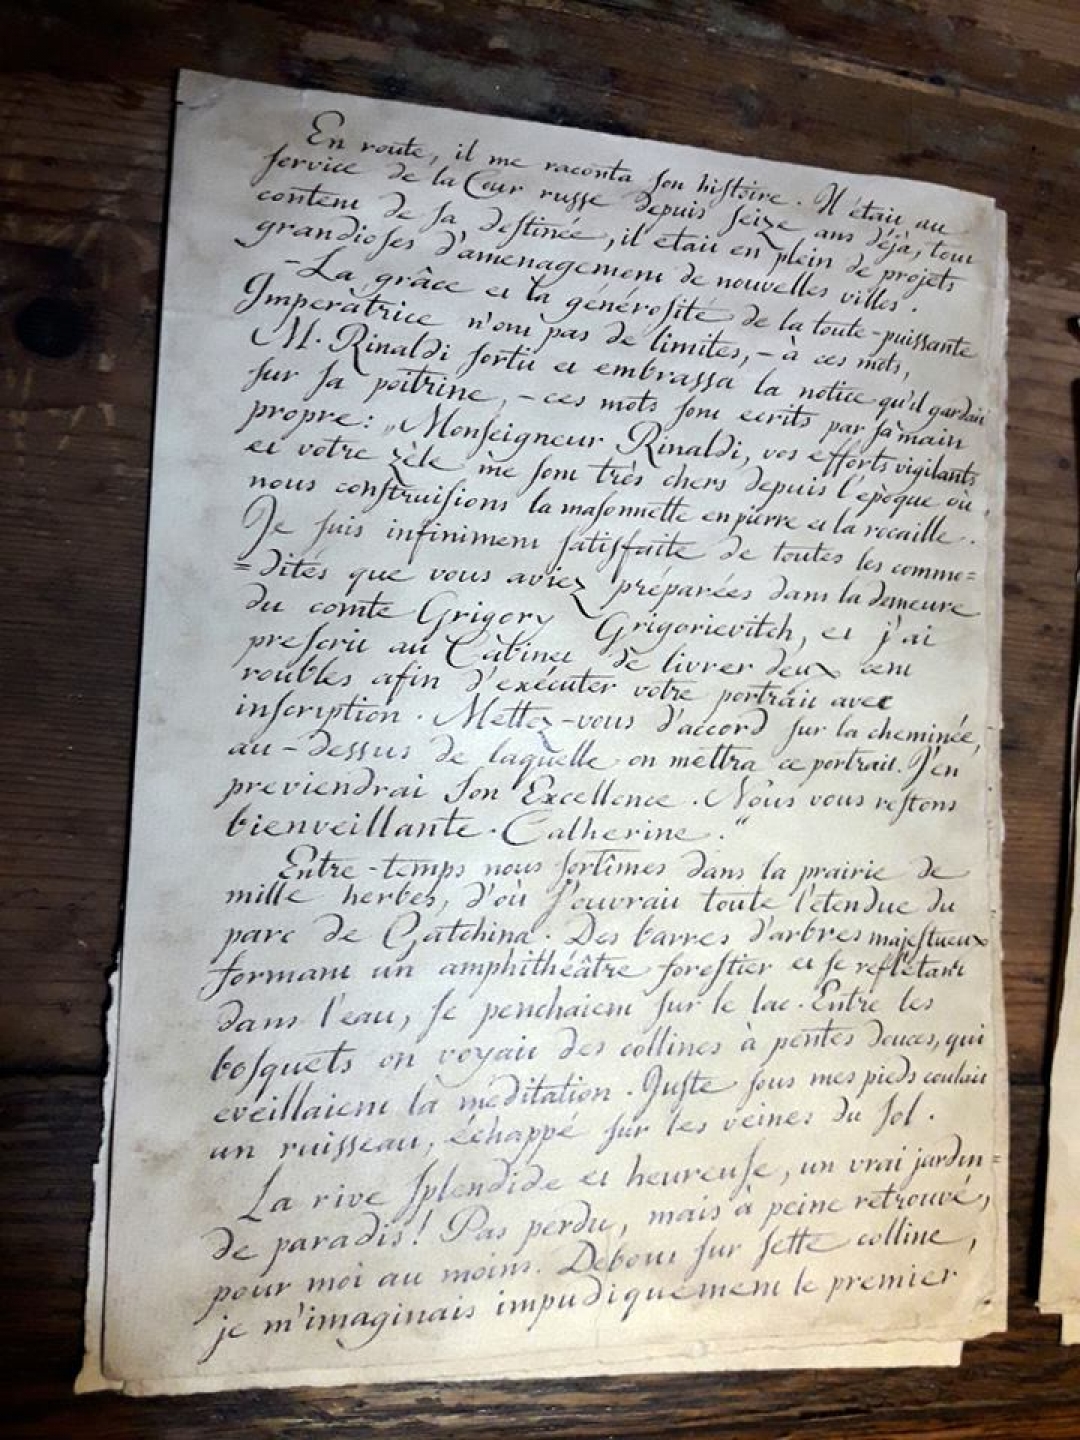 En route, il me raconta son histoire. Il était au
service de la Cour russe depuis seize ans déjà, tout
content de sa destinée, il etait en plein de projets
grandioses d'amenagement de nouvelles villes.
-La grâce et la générosité de la toute-puissante
Imperatrice n'ont pas de limites, - à ces mots,
M. Rinaldi sortit et embrassa la notice qu'il gardait
sur sa poitrine, - ces mots sont ecrits par sa main
propre: „Monseigneur Rinaldi, vos efforts vigilants
et votre zèle me sont très chers depuis l'epoque où
nous construisions la masonnette en pierre et la rocaille.
Je suis infiniment satisfaite de toutes les commo=
=dités que vous aviez préparées dans la demeure
du comte Grigory Grigorievitch, et j'ai
prescrit au Cabinet de livrer deux cent
roubles afin d'exécuter votre portrait avec
inscription. Mettez-vous d'accord sur la cheminée,
au-dessus de laquelle on mettra ce portrait. J'en
previendrai Son Excellence. Nous vous restons
bienveillante. Catherine."
Entre-temps nous sortîmes dans la prairie de
mille herbes, d'où s'ouvrait toute l'etendue du
parc de Gatchina. Des barres d'arbres majestueux
formant un amphithéâtre forestier et se reflétant
dans l'eau, se penchaient sur le lac. Entre les
bosquets on voyait des collines à pentes douces, qui
eveillaient la méditation. Juste sous mes pieds coulait
un ruisseau, échappé sur les veines du sol.
La rive splendide et heureuse, un vrai jardin=
de paradis! Pas perdu, mais à peine retrouvé,
pour moi au moins. Debout sur sette colline,
je m'imaginais impudiquement le premier